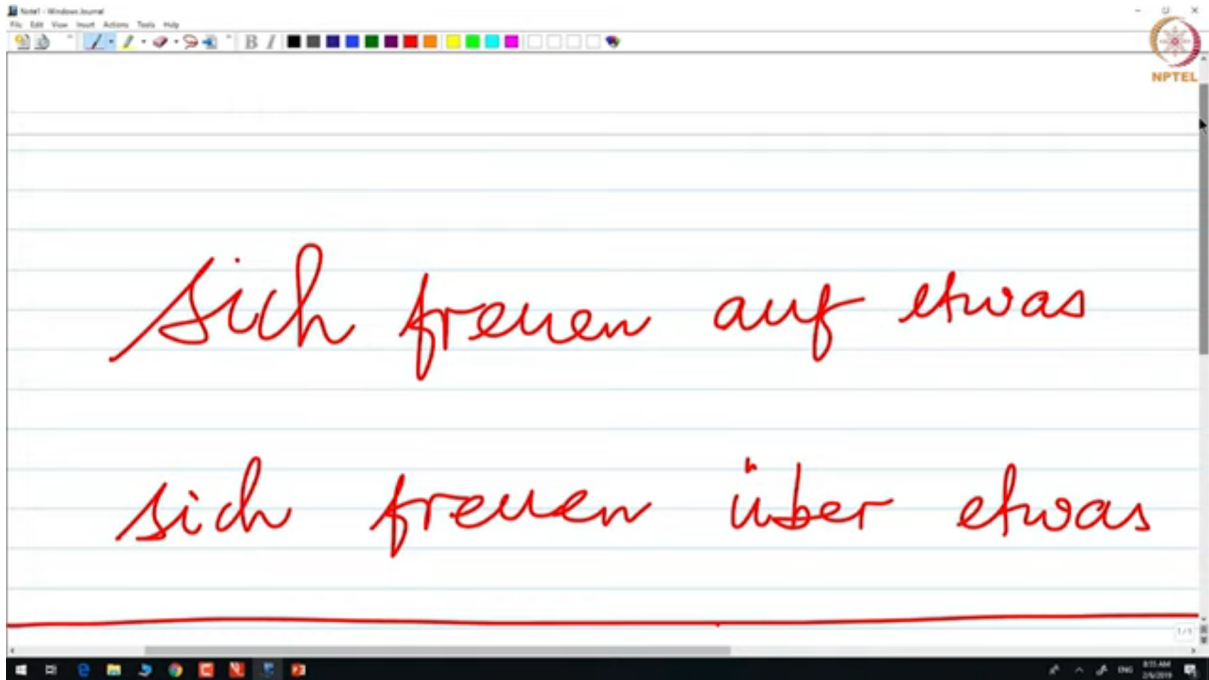 Note1 - Windows Journal
File Edit View Insert Actions Tools Help
B I
NPTEL
sich freuen auf etwas
sich freuen über etwas
1/1
ENG
8:55 AM
2/6/2019